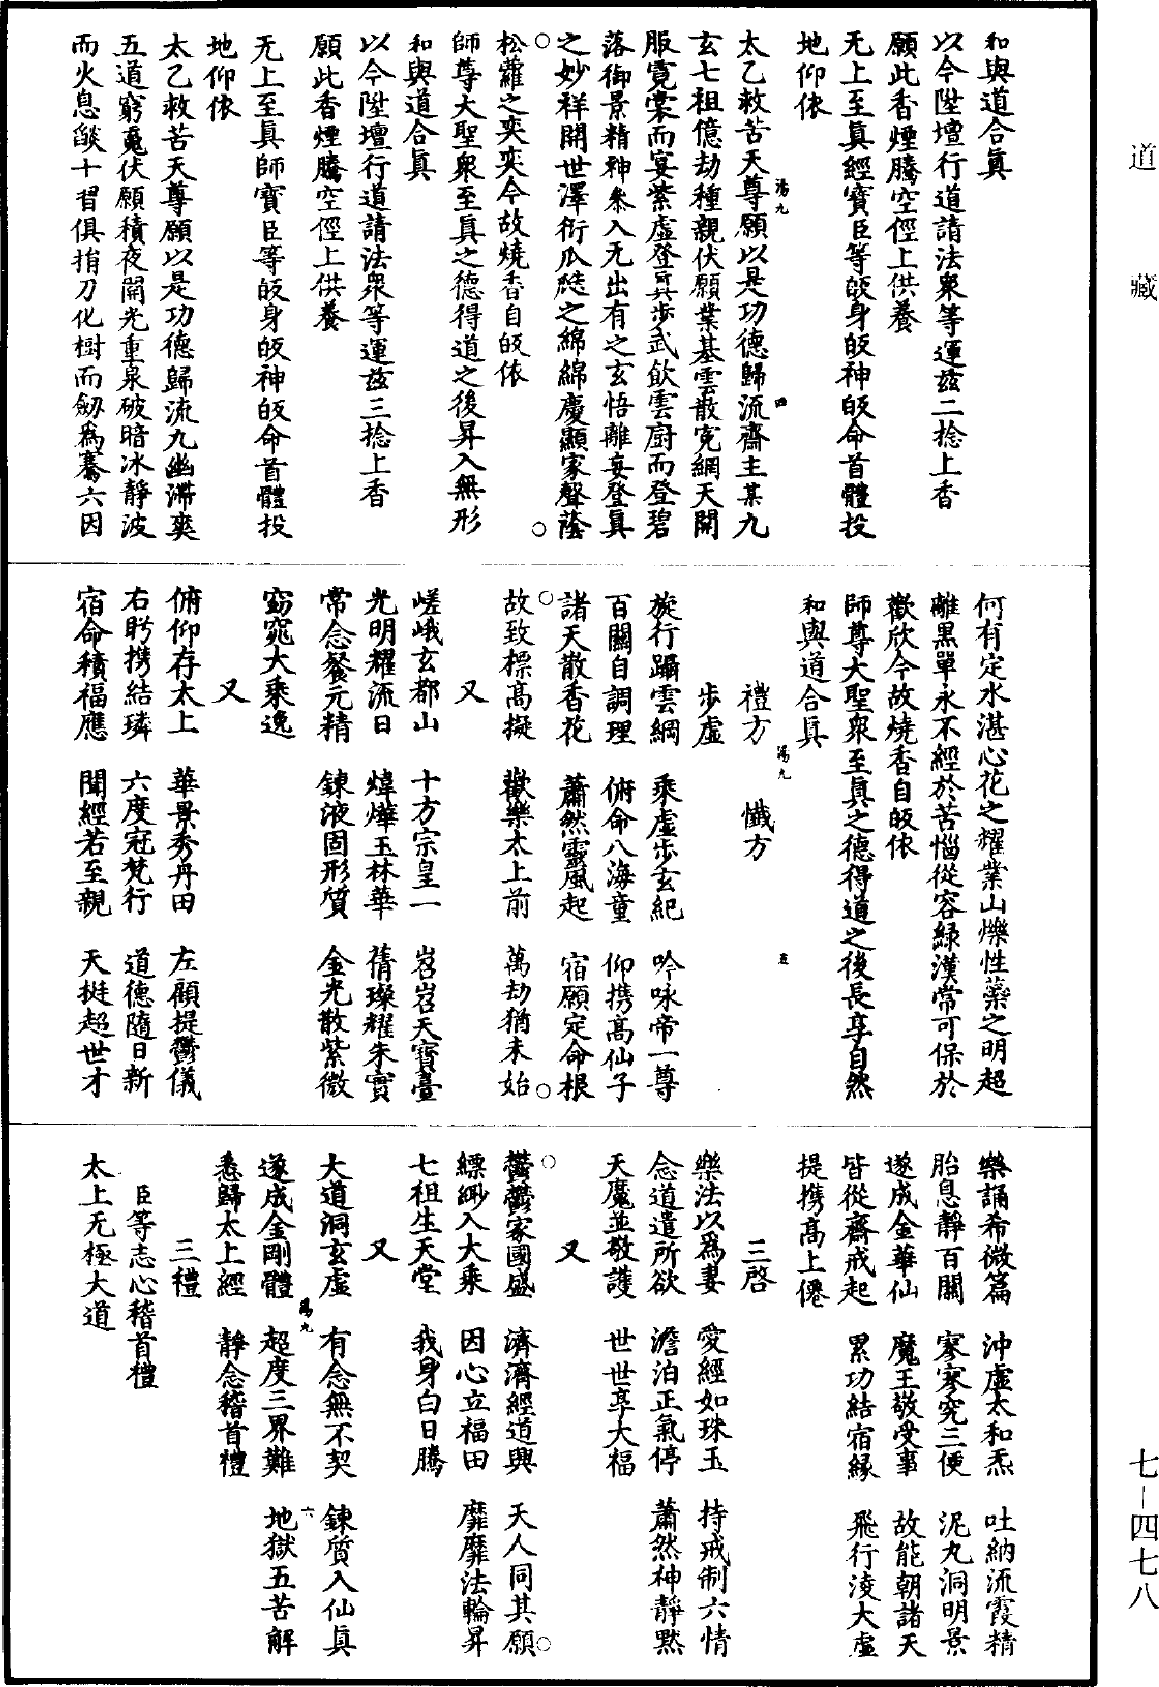 道藏
和與道合眞
以今陞壇行道請法衆等運兹二捻上香
願此香煙騰空徑上供養
无上至眞經寶臣等皈身皈神皈命首體投
地仰依
太乙救苦天尊願以是功德歸流齋主某九
玄七祖億劫種親伏願業基雲散寃網天開
服霓裳而宴紫虛登眞步武飲雲厨而登碧
落御景精神叅入无出有之玄悟離妄登眞
之妙祥開世澤衍瓜瓞之綿綿慶顯家聲蔭
松蘿之奕奕今故燒香自皈依
師尊大聖衆至眞之德得道之後昇入無形
和與道合眞
以今陞壇行道請法衆等運兹三捻上香
願此香煙騰空徑上供養
无上至眞師寶臣等皈身皈神皈命首體投
地仰依
太乙救苦天尊願以是功德歸流九幽滯爽
五道窮魂伏願積夜開光重泉破暗冰靜波
而火息燄十習俱捐刀化樹而劔爲騫六因
何有定水湛心花之耀業山爍性藥之明超
離黒單永不經於苦惱從容緑漢常可保於
歡欣今故燒香自皈依
師尊大聖衆至眞之德得道之後長享自然
和與道合眞
禮方 懴方
步虛
旋行躡雲綱 乘虛步玄紀 吟咏帝一尊
百關自調理 俯命八海童 仰携高仙子
諸天散香花 蕭然靈風起 宿願定命根
故致標高擬 歡樂太上前 萬劫猶未始
又
嵯峨玄都山 十方宗皇一 岧岧天寶臺
光明耀流日 煒燁玉林華 蒨璨耀朱實
常念餐元精 鍊液固形質 金光散紫微
窈窕大乘逸
又
俯仰存太上 華景秀丹田 左顧提鬱儀
右盻携結璘 六度冠梵行 道德隨日新
宿命積福應 聞經若至親 天挺超世才
樂誦希微篇 沖虛太和炁 吐納流霞精
胎息靜百關 寥寥究三便 泥丸洞明景
遂成金華仙 魔王敬受事 故能朝諸天
皆從齋戒起 累功結宿縁 飛行淩大虛
提携高上僊
三啓
樂法以爲妻 愛經如珠玉 持戒制六情
念道遣所欲 澹泊正氣停 蕭然神靜默
天魔並敬護 世世享大福
又
鬱鬱家國盛 濟濟經道興 天人同其願
縹緲入大乘 因心立福田 靡靡法輪昇
七祖生天堂 我身白日騰
又
大道洞玄虛 有念無不契 鍊質入仙眞
遂成金剛體 超度三界難 地獄五苦解
悉歸太上經 靜念稽首禮
三禮
臣等志心稽首禮
太上无極大道
七—四七八